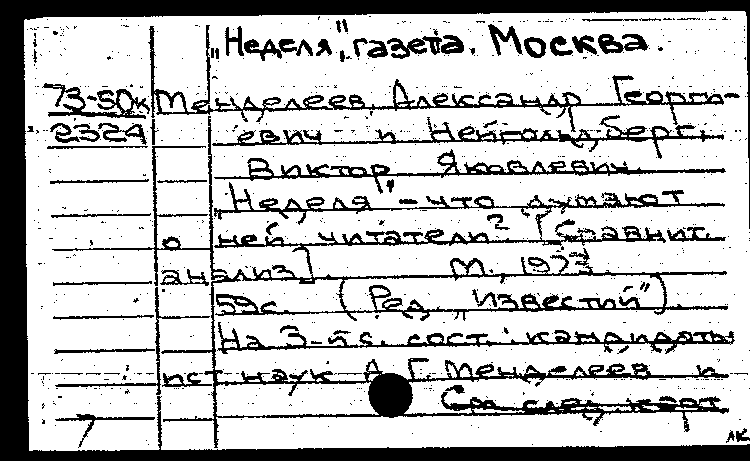 „Неделя“, газета. Москва.
73-50к Менделеев, Александр Георги-
2324 евич и Нейгольдберг,
Виктор Яковлевич.
„Неделя“ - что думают
о ней читатели? [Сравнит.
анализ]. М., 1973.
59с. (Ред. „Известий“).
На 3-й с. сост.: кандидаты
ист. наук А. Г. Менделеев и
См. след. карт.
7